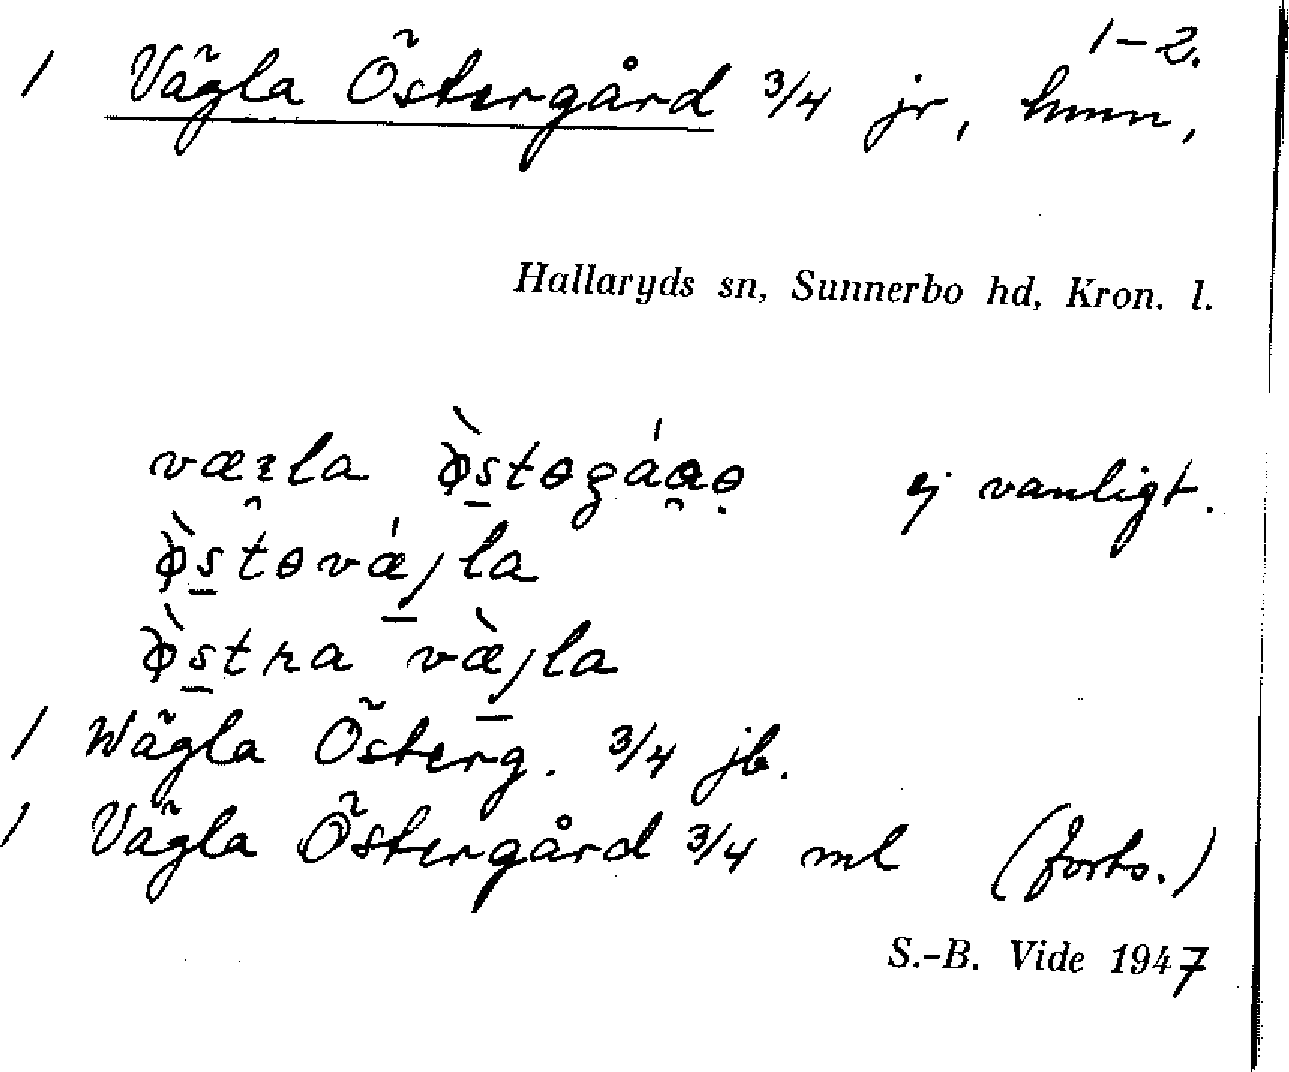 1-2.
1 Vägla Östergård 3/4 jr, hmn,
Hallaryds sn, Sunnerbo hd, Kron. l.
ej vanligt.
1 Wägla Österg. 3/4 jb.
1 Vägla Östergård 3/4 ml (forts.)
S.-B. Vide 1947